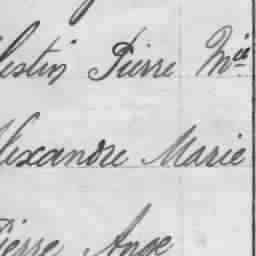 lestin Pierre Mie
lexandre Marie
Pierre Ange